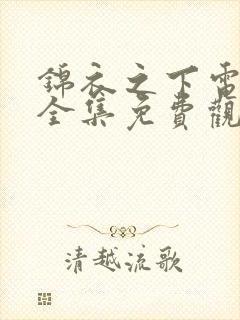 錦衣之下電
全集免費觀
清越流歌